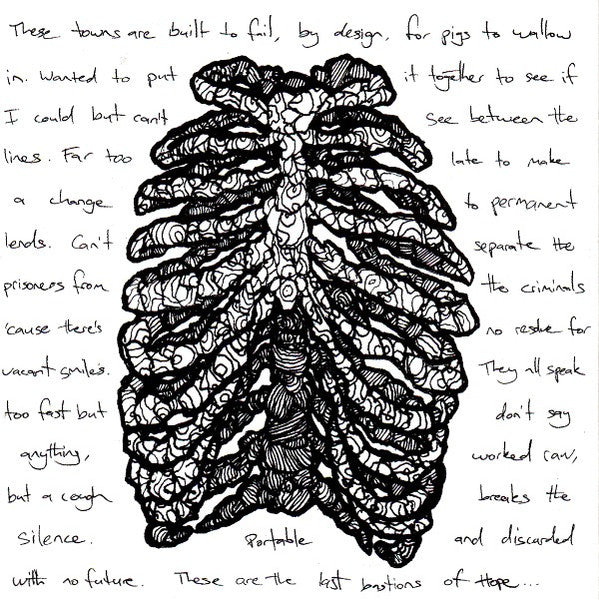 These towns are built to fail, by design, for pigs to wallow
in. Wanted to put it together to see if
I could but can't see between the
lines. Far too late to make
a change to permanent
lends. Can't separate the
prisoners from the criminals
'cause there's no for
vacant smiles. They all speak
too fast but don't say
anything, worked raw,
but a cough breaks the
silence. Portable and discarded
with no future. These are the last bastions of Hope...